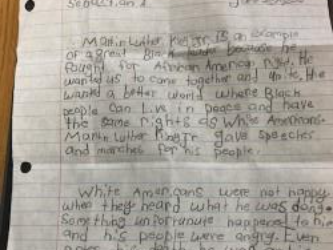 Sebastian
Martin Luther King Jr. is an example
of a great Black leader because he
fought for African American right. He
wanted us to come together and unite. He
wanted a better world where Black
people can live in peace and have
the same rights as White Americans.
Martin Luther King Jr gave speeches
and marches for his people.
White Americans were not happy
when they heard what he was doing.
Something unfortunate happened to him
and his people were angry. Even